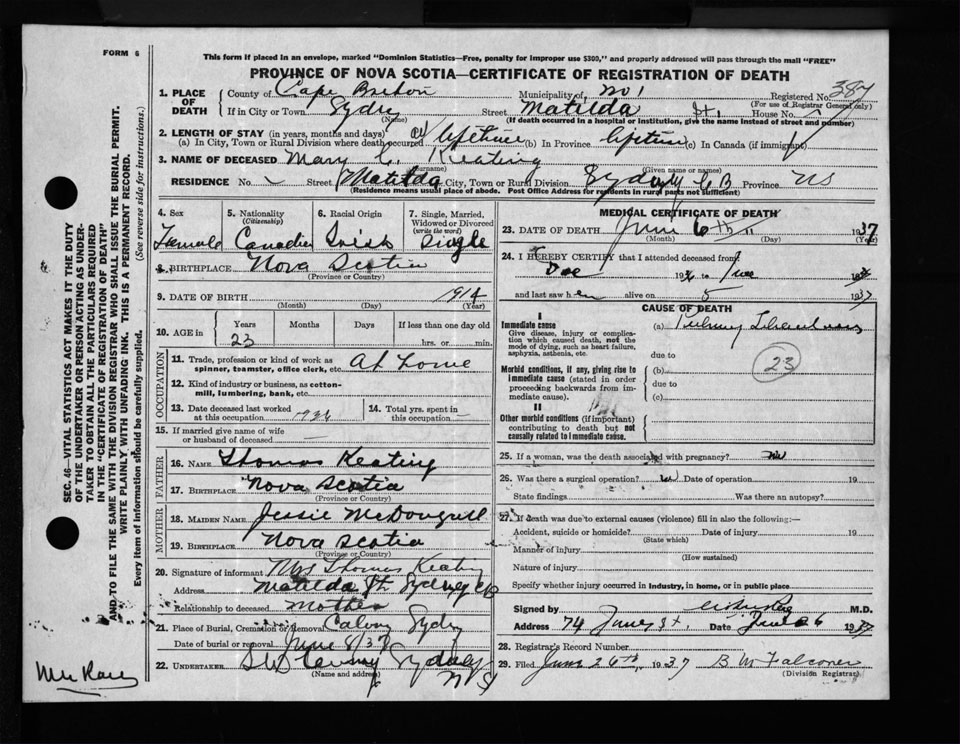 FORM 6
This form if placed in an envelope, marked "Dominion Statistics—Free, penalty for improper use $300," and properly addressed will pass through the mail "FREE"
PROVINCE OF NOVA SCOTIA—CERTIFICATE OF REGISTRATION OF DEATH
387
1. PLACE OF DEATH County of Cape Breton Municipality of No 1 Registered No.
(For use of Registrar General only)
If in City or Town Sydney Street Matilda St. House No.
(Name) (If death occurred in a hospital or institution, give the name instead of street and number)
2. LENGTH OF STAY (in years, months and days)
(a) In City, Town or Rural Division where death occurred lifetime (b) In Province lifetime (c) In Canada (if immigrant)
3. NAME OF DECEASED Mary C. Keating
(Surname) (Given name or names)
RESIDENCE No. Street Matilda City, Town or Rural Division Sydney C B Province NS
(Residence means usual place of abode. Post Office Address for residents in rural parts not sufficient)
4. Sex Female
5. Nationality (Citizenship) Canadian
6. Racial Origin Irish
7. Single, Married, Widowed or Divorced (write the word) Single
8. BIRTHPLACE Nova Scotia
(Province or Country)
9. DATE OF BIRTH 1914
(Month) (Day) (Year)
10. AGE in Years Months Days If less than one day old
23 hrs. or min.
OCCUPATION
11. Trade, profession or kind of work as spinner, teamster, office clerk, etc. At Home
12. Kind of industry or business, as cotton-mill, lumbering, bank, etc.
13. Date deceased last worked at this occupation
14. Total yrs. spent in this occupation
15. If married give name of wife or husband of deceased
FATHER
16. NAME Thomas Keating
17. BIRTHPLACE Nova Scotia
(Province or Country)
MOTHER
18. MAIDEN NAME Jessie McDougall
19. BIRTHPLACE Nova Scotia
(Province or Country)
20. Signature of informant Mrs Thomas Keating
Address Matilda St. Sydney CB
Relationship to deceased Mother
21. Place of Burial, Cremation or Removal Calvary Sydney
Date of burial or removal June 8/37
22. UNDERTAKER Sydney
(Name and address) N S
MEDICAL CERTIFICATE OF DEATH
23. DATE OF DEATH June 6th 1937
(Month) (Day) (Year)
24. I HEREBY CERTIFY that I attended deceased from
Dec 193 to June 193
and last saw her alive on 5 1937
CAUSE OF DEATH
I
Immediate cause
Give disease, injury or complication which caused death, not the mode of dying, such as heart failure, asphyxia, asthenia, etc.
(a)
due to
(b)
due to
(c)
23
Morbid conditions, if any, giving rise to immediate cause (stated in order proceeding backwards from immediate cause).
II
Other morbid conditions (if important) contributing to death but not causally related to immediate cause.
25. If a woman, was the death associated with pregnancy? no
26. Was there a surgical operation? no Date of operation 19
State findings Was there an autopsy?
27. If death was due to external causes (violence) fill in also the following:—
Accident, suicide or homicide? Date of injury 19
(State which)
Manner of injury
(How sustained)
Nature of injury
Specify whether injury occurred in industry, in home, or in public place
Signed by M.D.
Address 74 St. Date June 26 1937
28. Registrar's Record Number
29. Filed June 26th, 1937 B M Falconer
(Division Registrar)
SEC. 46—VITAL STATISTICS ACT MAKES IT THE DUTY
OF THE UNDERTAKER OR PERSON ACTING AS UNDER-
TAKER TO OBTAIN ALL THE PARTICULARS REQUIRED
IN THE "CERTIFICATE OF REGISTRATION OF DEATH"
AND TO FILE THE SAME WITH THE DIVISION REGISTRAR WHO SHALL ISSUE THE BURIAL PERMIT.
WRITE PLAINLY WITH UNFADING INK. THIS IS A PERMANENT RECORD.
Every item of information should be carefully supplied. (See reverse side for instructions.)